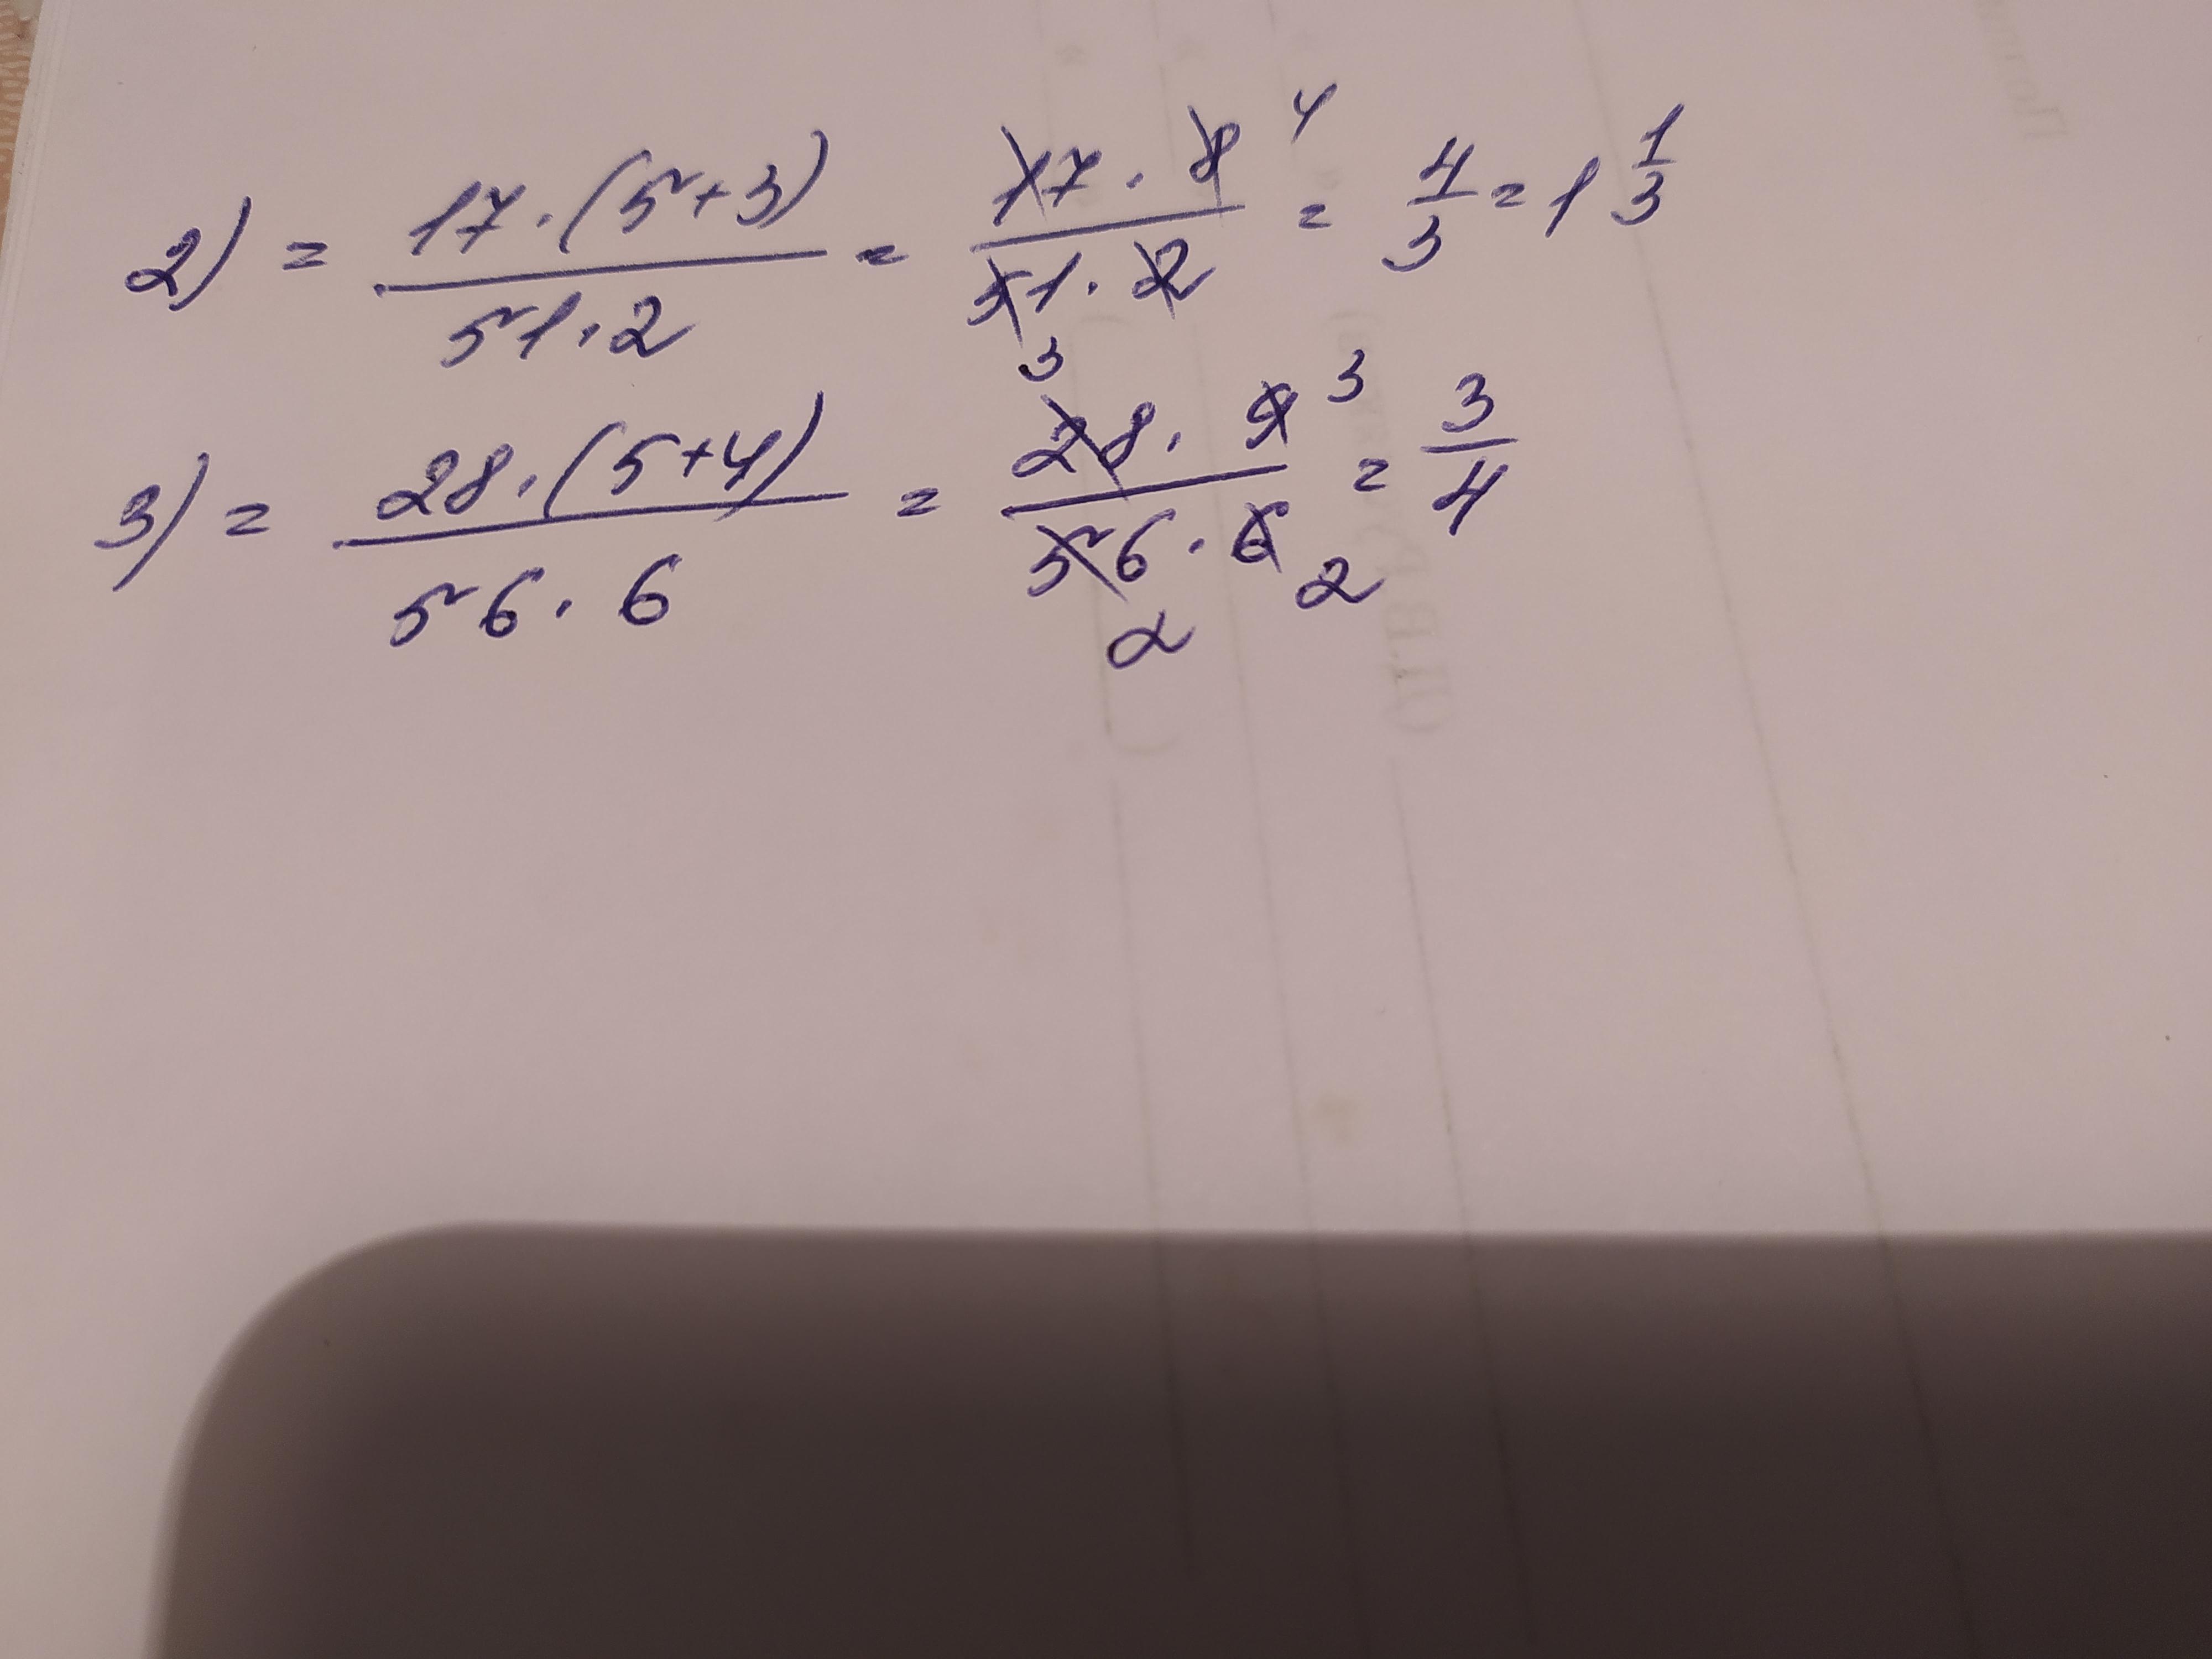 2) = 17·(5+3) / 51·2 = 17·8 4 / 51·2 3 = 4/3 = 1 1/3
3) = 28·(5+4) / 56·6 = 28·9 3 / 56·6 2 2 = 3/4